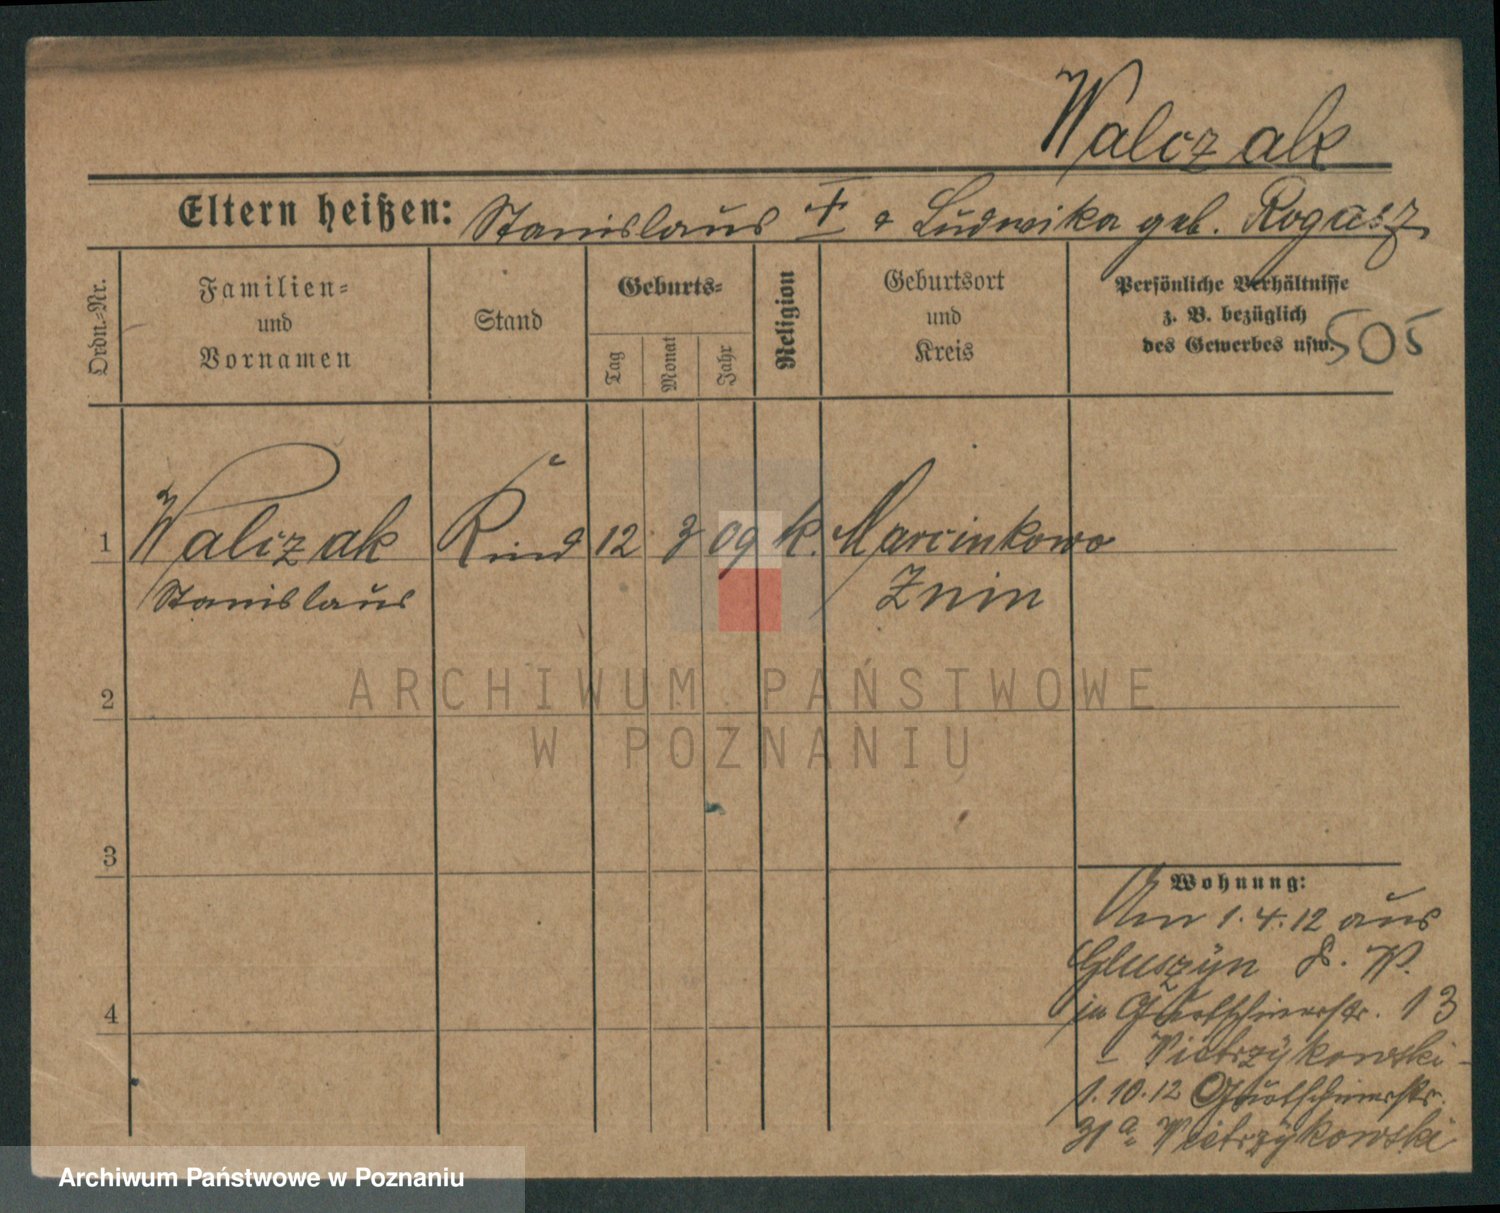 Walczak
Eltern heißen: Stanislaus † & Ludwika geb. Rogasz
Ordn.-Nr.
Familien-
und
Vornamen
Stand
Geburts-
Tag
Monat
Jahr
Religion
Geburtsort
und
Kreis
Persönliche Verhältnisse
z. B. bezüglich
des Gewerbes usw.
505
1 Walczak Kind 12 3 09 k. Marcinkowo
Stanislaus Znin
2
ARCHIWUM PAŃSTWOWE
W POZNANIU
3
Wohnung:
Am 1.4.12 aus
Gluszyn P. W.
in Gurtschinerstr. 13
– Pietrzykowski –
4
1.10.12 Gurtschinerstr.
31a Pietrzykowski
Archiwum Państwowe w Poznaniu